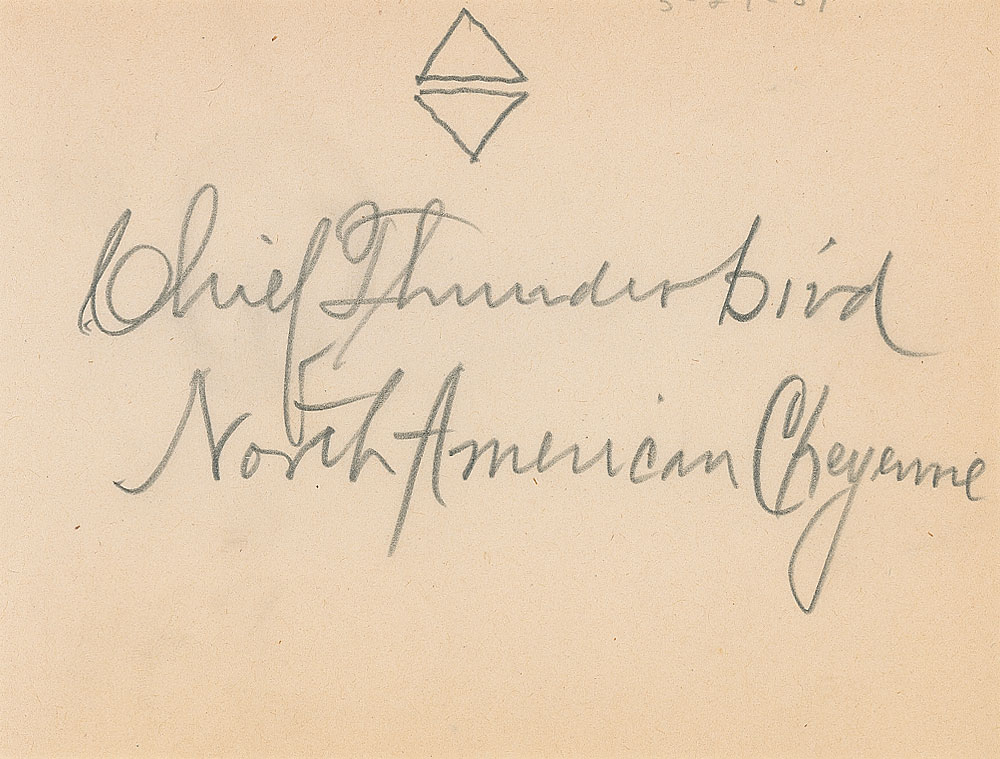 Chief Thunderbird
North American Cheyenne